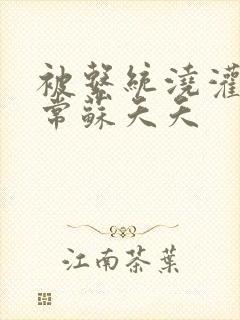 被系統澆灌
常蘇天天
江南茶葉